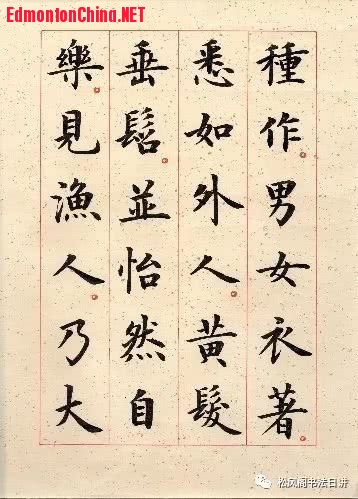 EdmontonChina.NET
種作男女衣著
悉如外人黃髮
垂髫並怡然自
樂見漁人乃大
松风阁书法日讲